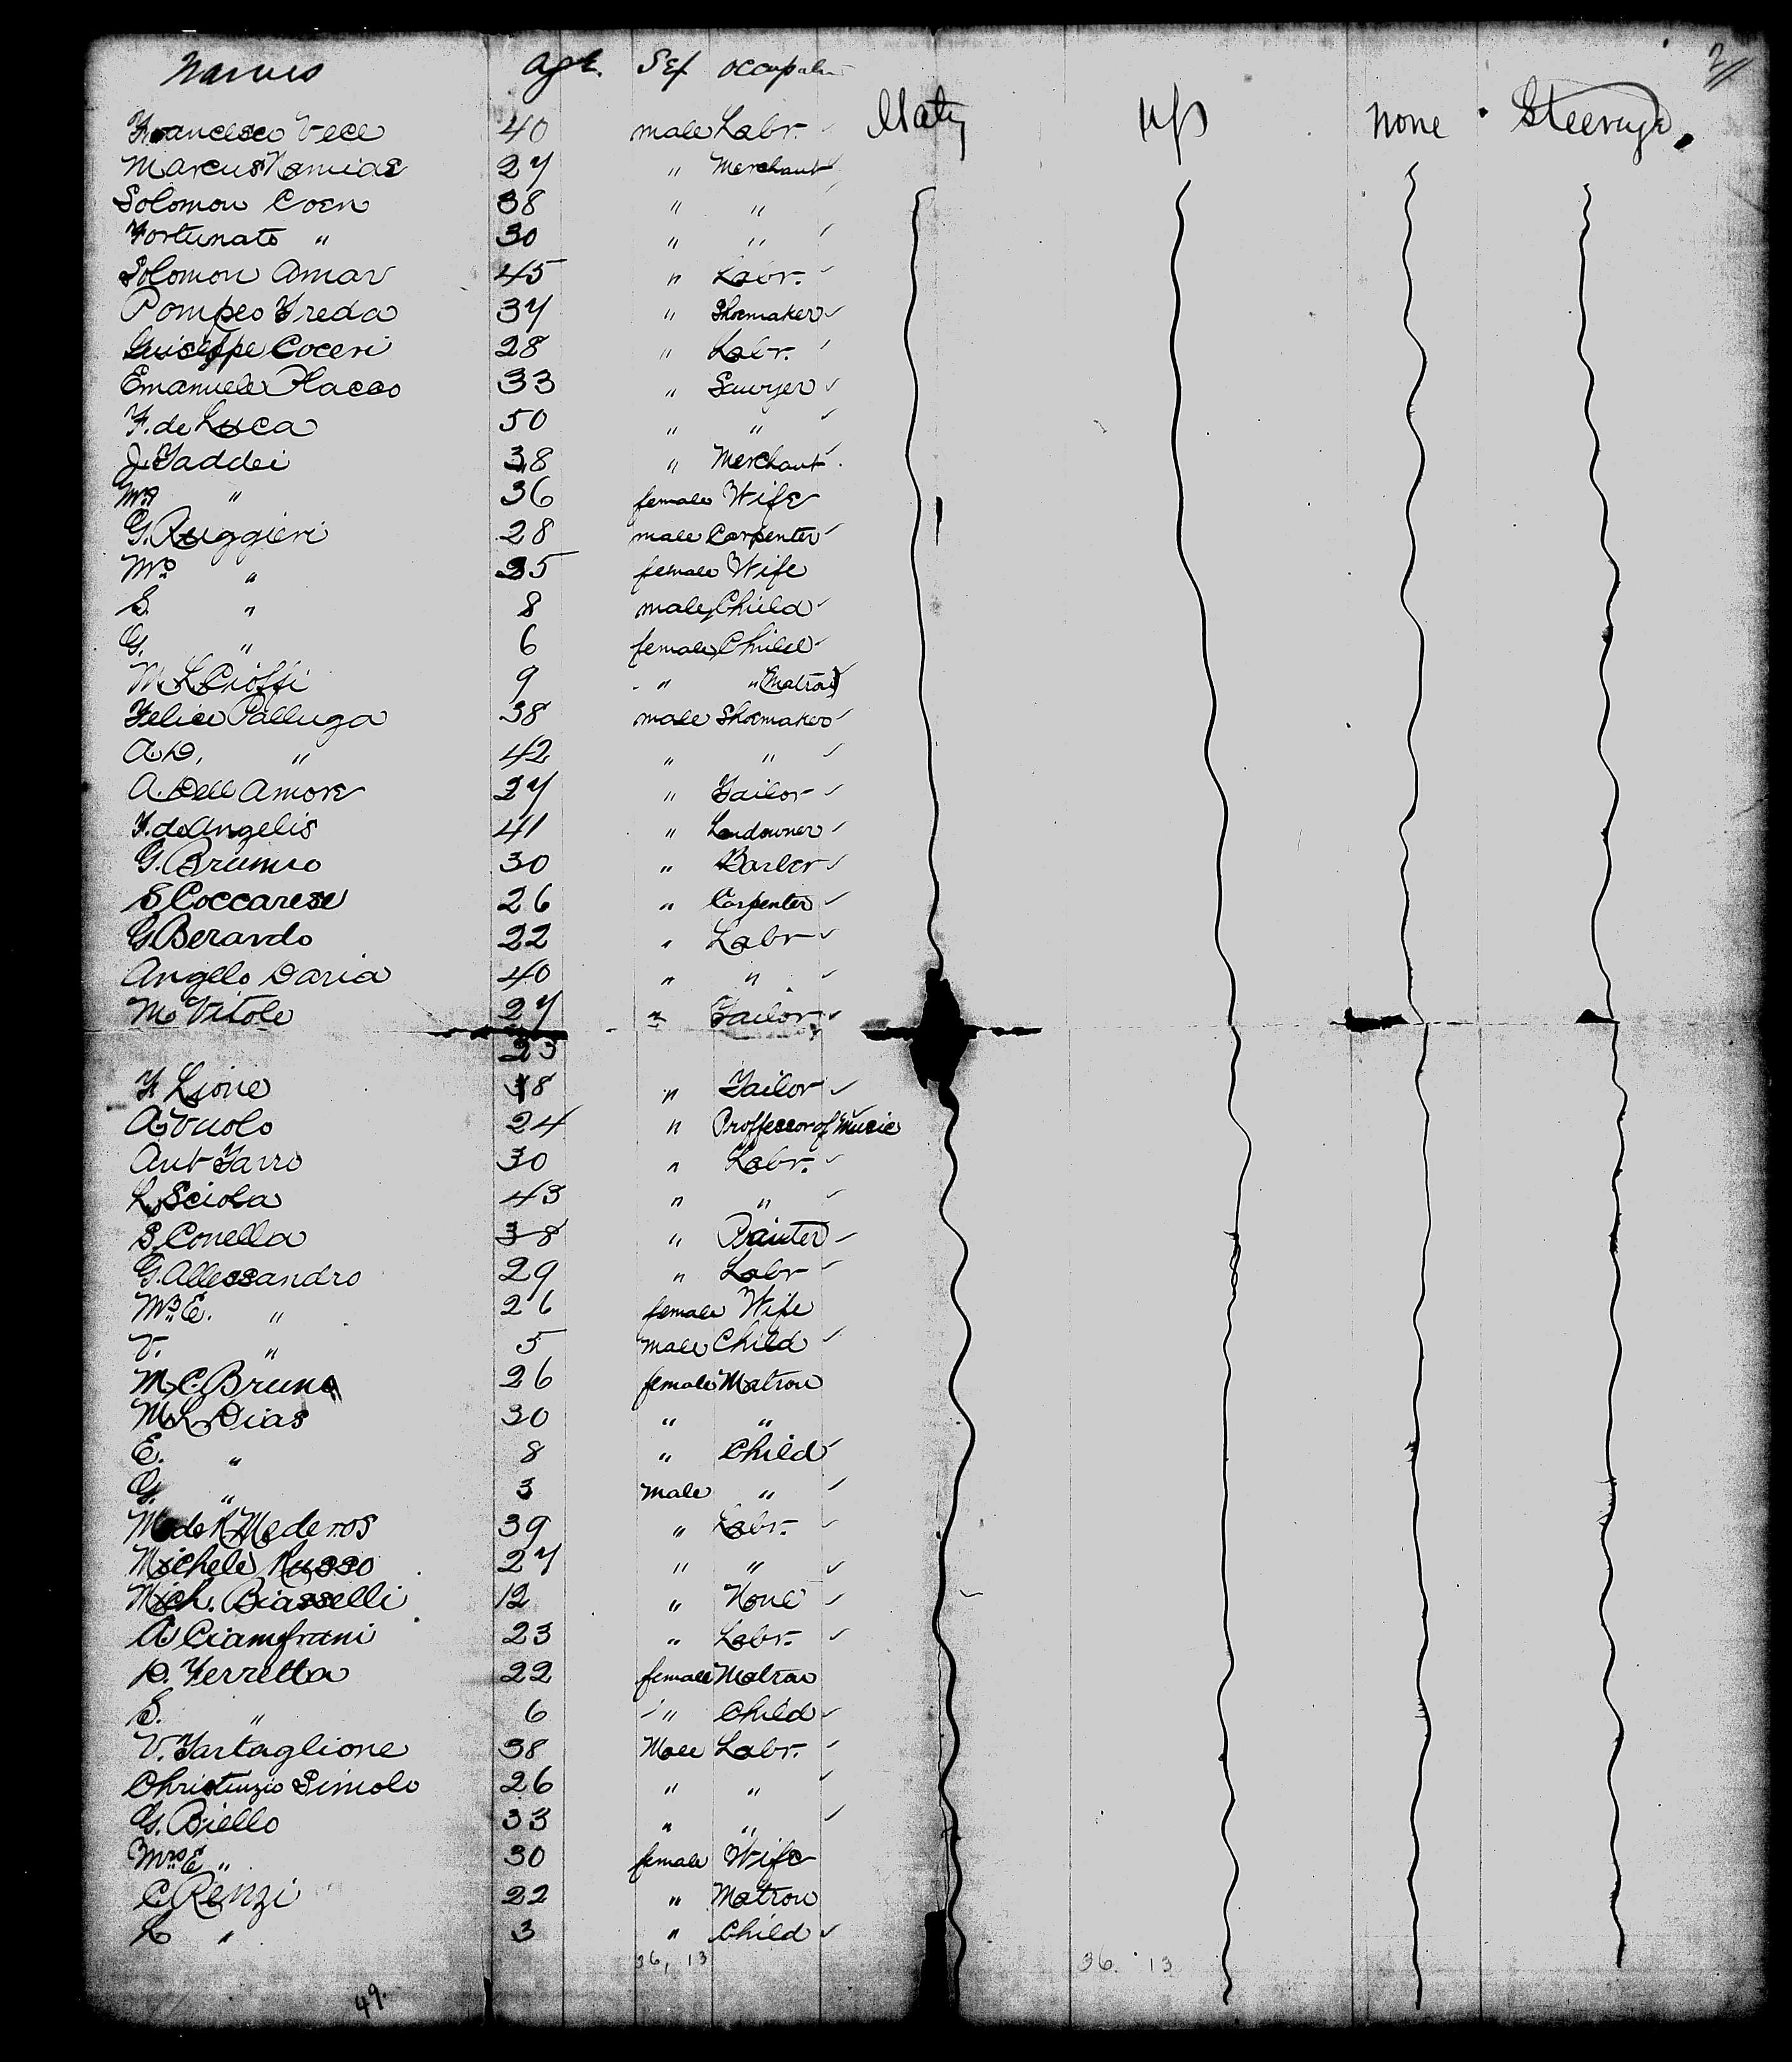 2
Names Age Sex Occupatn
Francesco Vece 40 male Labr. Italy US none Steerage
Marcus Namias 27 " Merchant
Solomon Coen 38 " "
Fortunato " 30 " "
Solomon Amar 45 " Labr.
Pompeo Freda 37 " Shoemaker
Guiseppe Coceri 28 " Labr.
Emanuele Flacco 33 " Sawyer
F. de Luca 50 " "
J. Taddei 38 " Merchant
Mrs " 36 female Wife
G. Ruggieri 28 male Carpenter
Mrs " 25 female Wife
S. " 8 male Child
G. " 6 female Child
M. L. Cioffi 9 " " (Matron)
Felice Palluga 38 male Shoemaker
A. D. " 42 " "
A. Dell Amore 27 " Tailor
F. de Angelis 41 " Landowner
G. Brunno 30 " Barber
S. Coccarese 26 " Carpenter
G. Berardo 22 " Labr
Angelo Daria 40 " "
M. Vitole 27 " Tailor
23
F. Lione 38 " Tailor
A. Vuolo 24 " Proffessor of Music
Ant Farro 30 " Labr.
L. Sciola 43 " "
S. Conella 38 " Painter
G. Allessandro 29 " Labr
Mrs E. " 26 female Wife
V. " 5 male Child
M. C. Bruno 26 female Matron
M. L. Dias 30 " "
E. " 8 " Child
G. " 3 male "
M de R Mederos 39 " Labr.
Michele Russo 27 " "
Mich. Biasselli 12 " None
A. Ciamfrani 23 " Labr.
D. Ferretta 22 female Matron
S. " 6 " Child
V. Tartaglione 38 Male Labr.
Christinzio Simolo 26 " "
G. Biello 33 " "
Mrs E " 30 female Wife
C. Renzi 22 " Matron
L " 3 " Child
36, 13 36. 13
49.